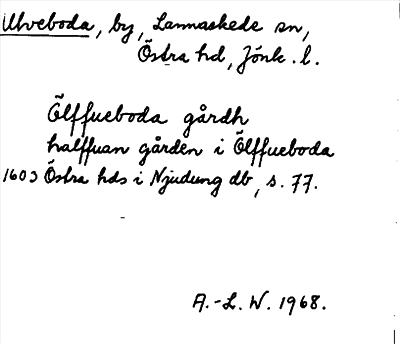 Ulveboda, by, Lannaskede sn,
Östra hd, Jönk. l.
Ölffueboda gårdh
halffuan gården i Ölffueboda
1603 Östra hds i Njudung db, s. 77.
A.-L. W. 1968.